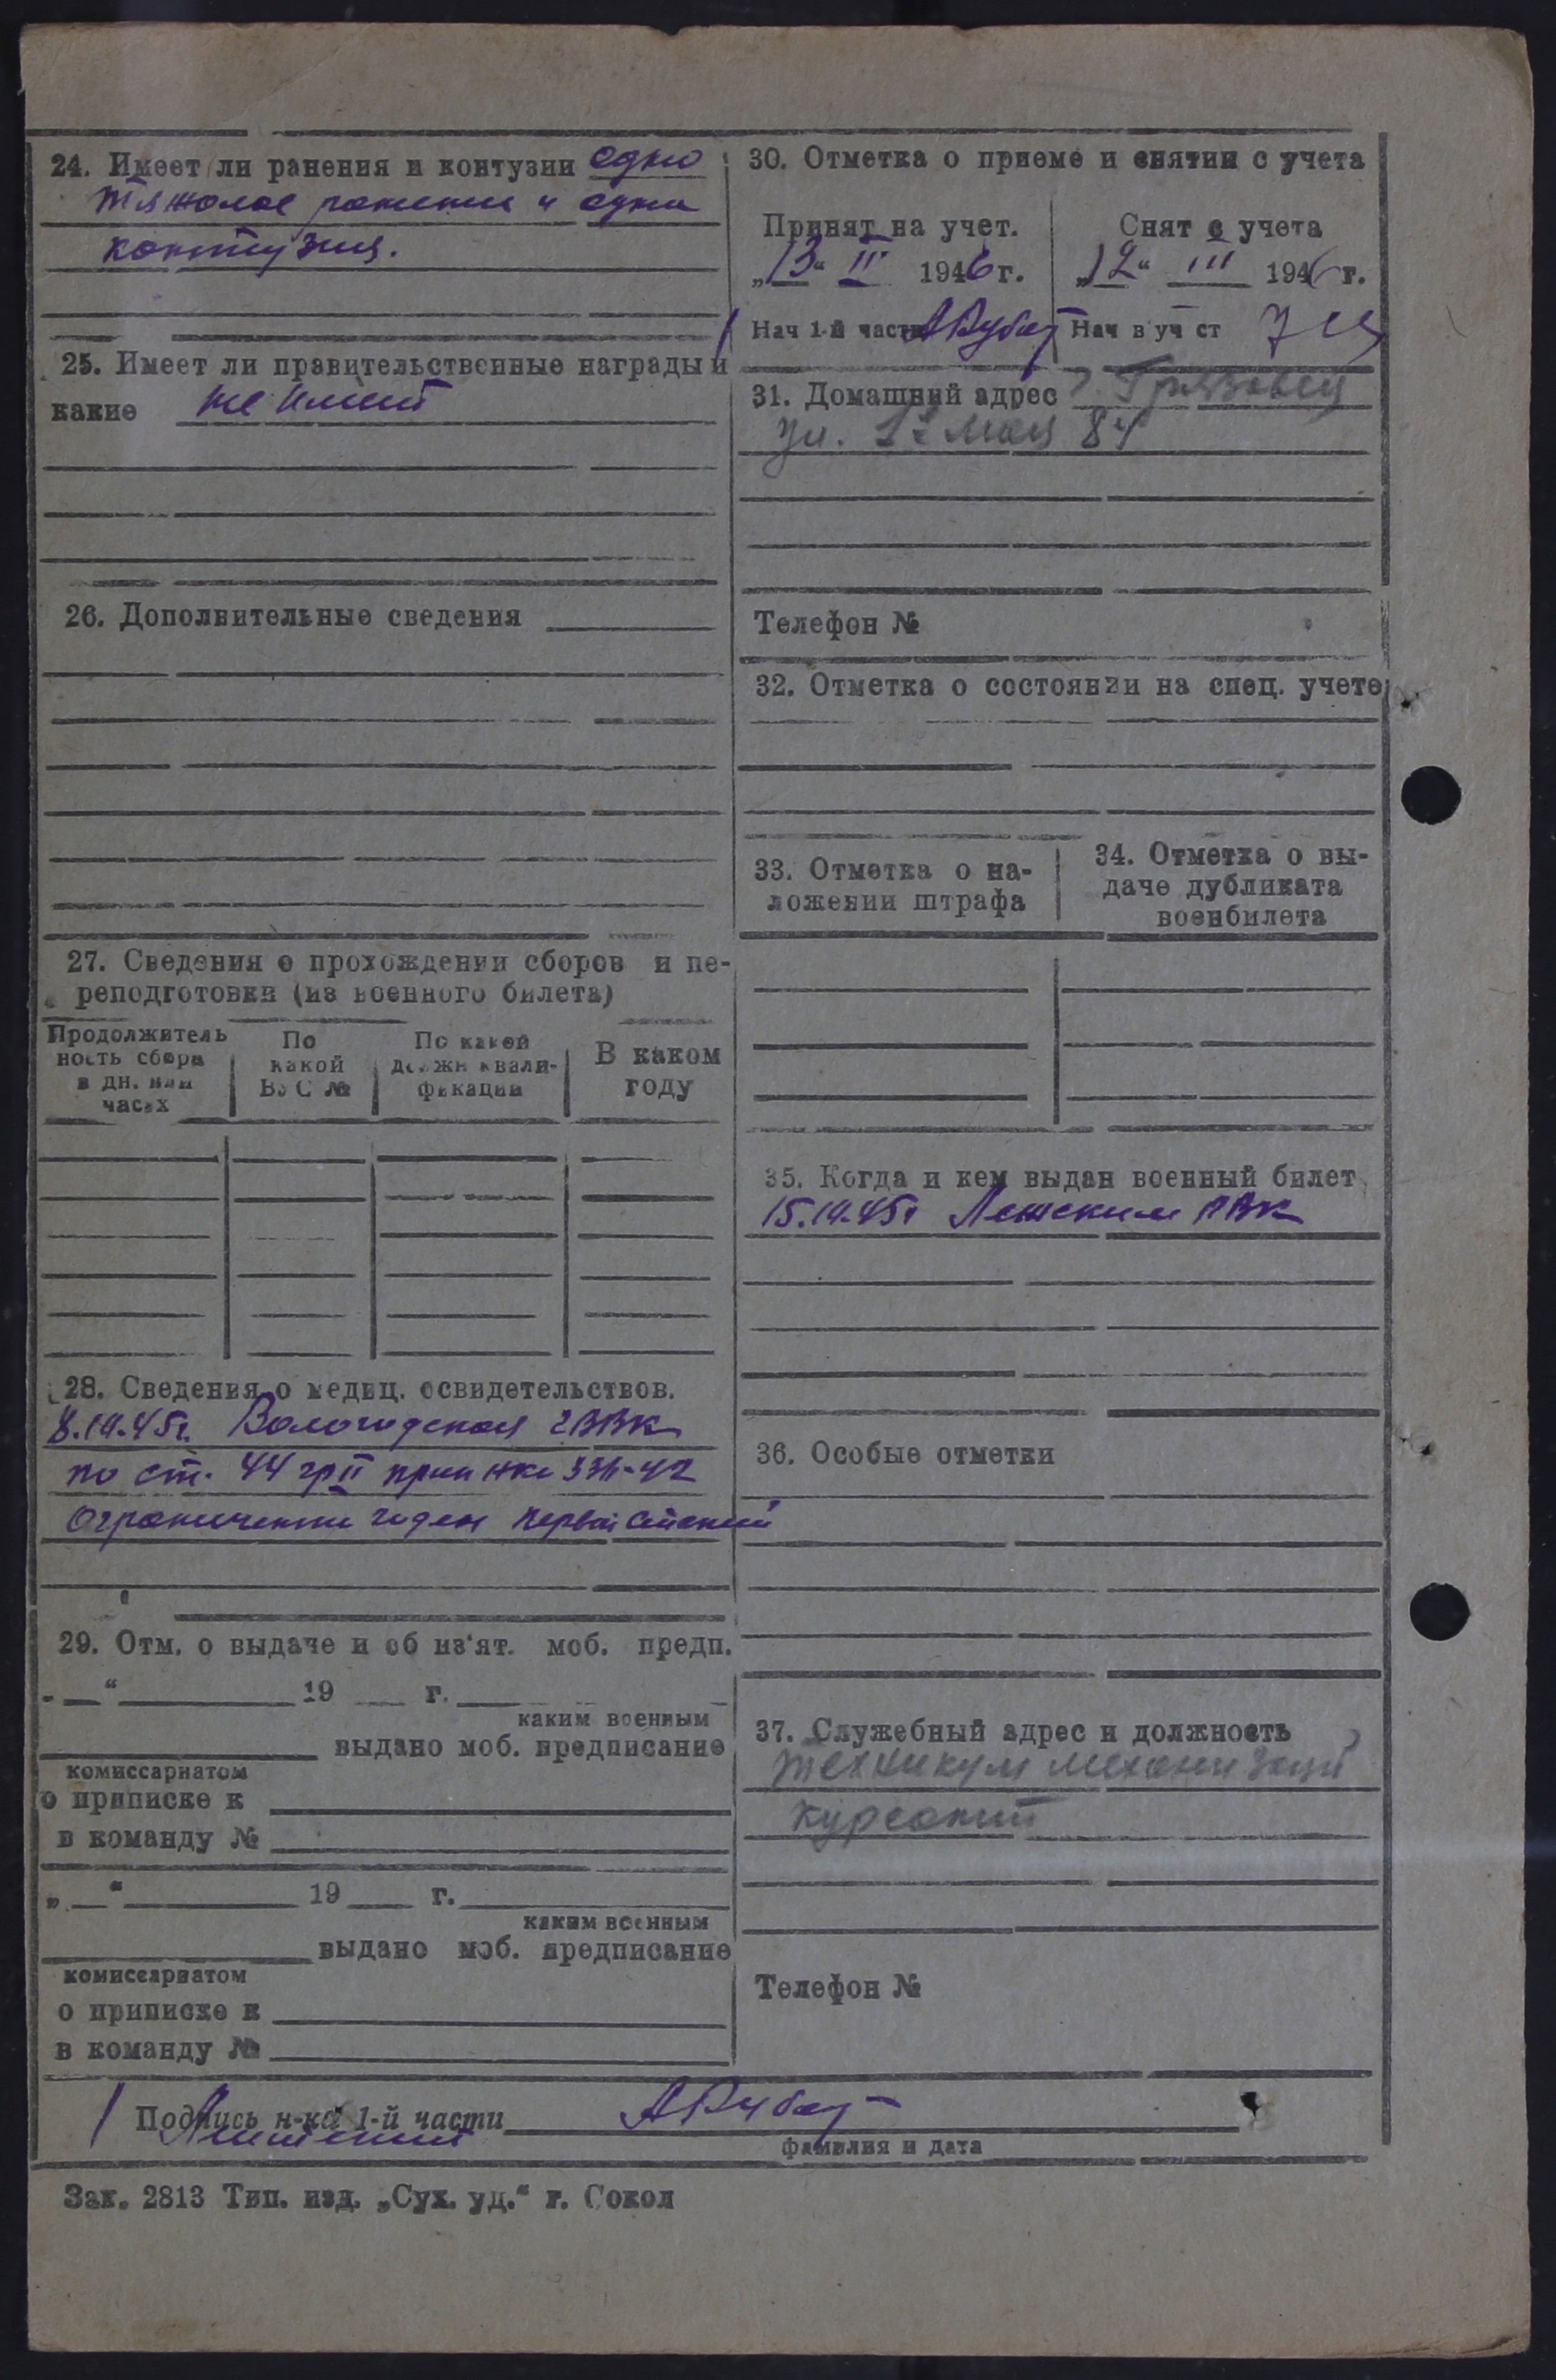 24. Имеет ли ранения и контузии одно
тяжолое ранение и одна
контузия.
25. Имеет ли правительственные награды и
какие не имеет
26. Дополнительные сведения
27. Сведения о прохождении сборов и пе-
реподготовки (из военного билета)
Продолжитель
ность сбора
в дн. или
часах
По
какой
ВУС №
По какой
должн квали-
фикации
В каком
году
28. Сведения о медиц. освидетельствов.
Вологодская ГВВК
по ст. 44 гр II прик нко 336-42
Ограниченно годен первой степени
29. Отм. о выдаче и об из'ят. моб. предп.
„ “ 19 г.
каким военным
выдано моб. предписание
комиссариатом
о приписке к
в команду №
„ “ 19 г.
каким военным
выдано моб. предписание
комиссариатом
о приписке к
в команду №
30. Отметка о приеме и снятии с учета
Принят на учет.
„13“ II 1946 г.
Нач 1-й части
Снят с учета
„12“ III 1946 г.
Нач в уч ст
31. Домашний адрес г. Грязовец
ул. 1е мая 84
Телефон №
32. Отметка о состоянии на спец. учете
33. Отметка о на-
ложении штрафа
34. Отметка о вы-
даче дубликата
военбилета
35. Когда и кем выдан военный билет
РВК
36. Особые отметки
37. Служебный адрес и должность
техникум механизаци
курсант
Телефон №
Подпись н-ка 1-й части
фамилия и дата
Зак. 2813 Тип. изд. „Сух. уд.“ г. Сокол